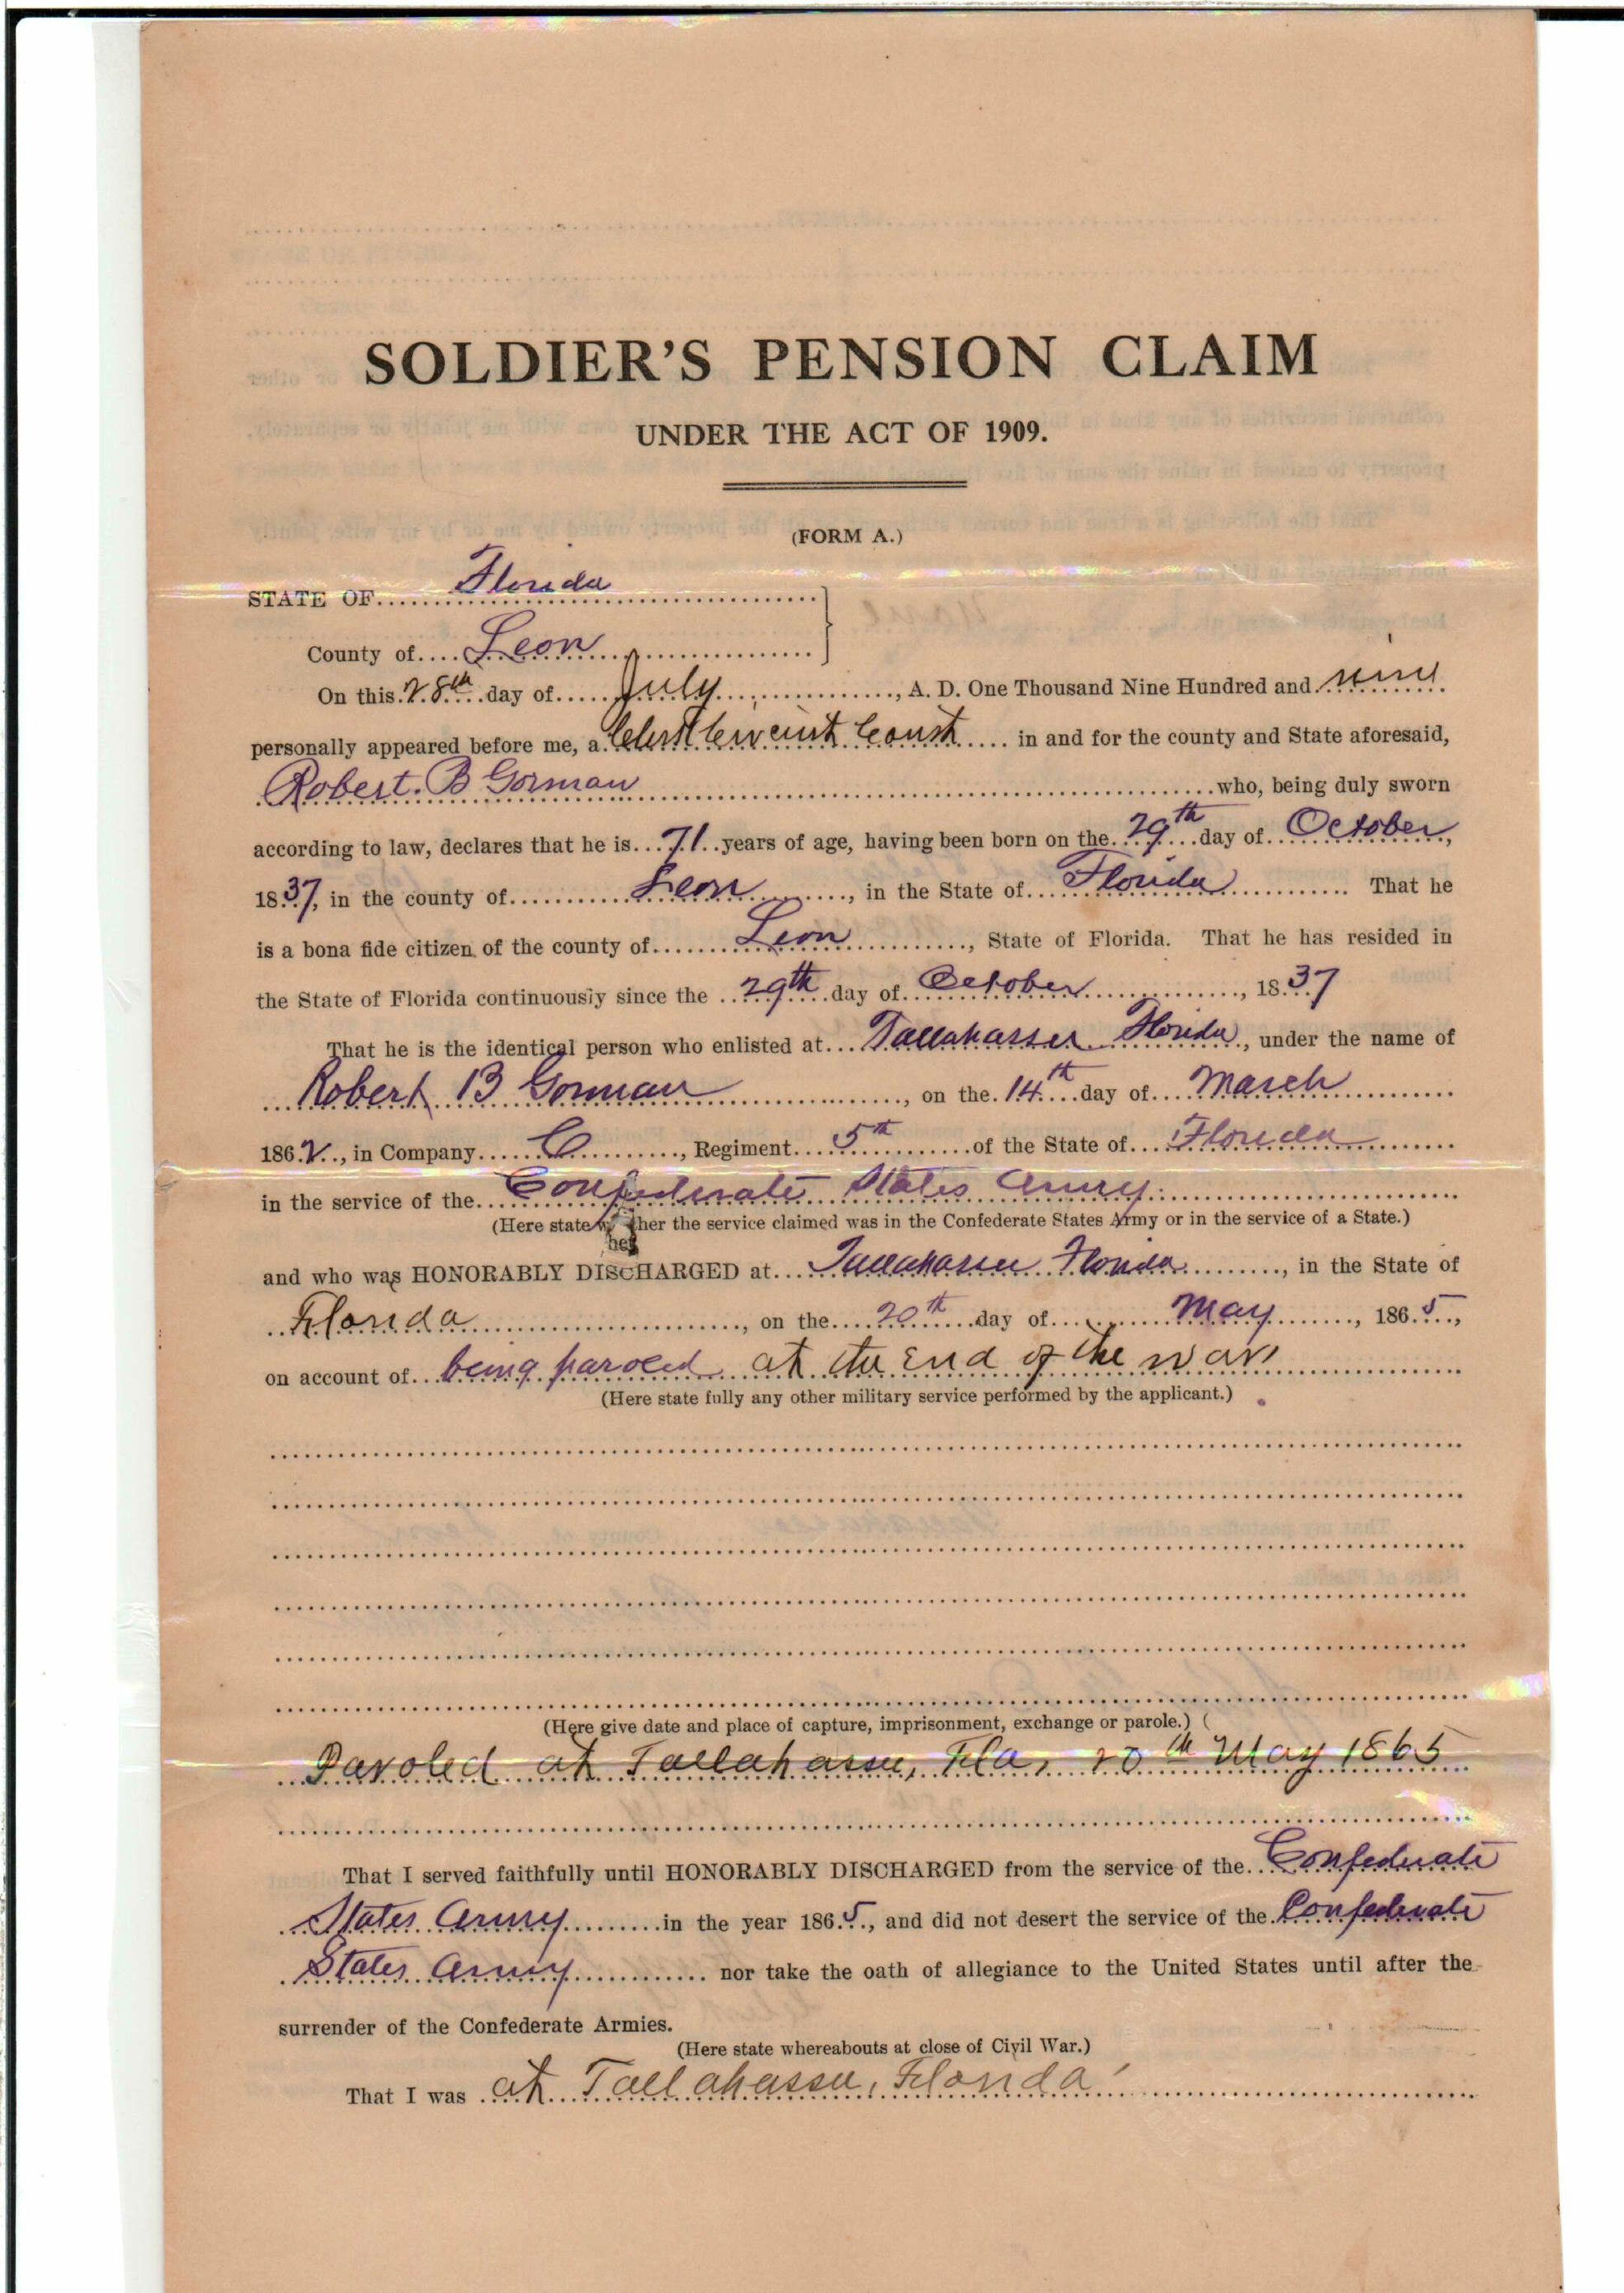 SOLDIER'S PENSION CLAIM
UNDER THE ACT OF 1909.
(FORM A.)
STATE OF Florida
County of Leon
On this 28th day of July, A. D. One Thousand Nine Hundred and nine
personally appeared before me, a Clerk Circuit Court in and for the county and State aforesaid,
Robert. B Gorman who, being duly sworn
according to law, declares that he is 71 years of age, having been born on the 29th day of October,
1837, in the county of Leon, in the State of Florida. That he
is a bona fide citizen of the county of Leon, State of Florida. That he has resided in
the State of Florida continuously since the 29th day of October, 1837
That he is the identical person who enlisted at Tallahassee Florida, under the name of
Robert B Gorman, on the 14th day of March
1862, in Company C, Regiment 5th of the State of Florida
in the service of the Confederate States Army.
(Here state whether the service claimed was in the Confederate States Army or in the service of a State.)
and who was HONORABLY DISCHARGED at Tallahassee Florida, in the State of
Florida, on the 20th day of May, 1865,
on account of being paroled at the End of the war
(Here state fully any other military service performed by the applicant.)
(Here give date and place of capture, imprisonment, exchange or parole.)
Paroled at Tallahassee, Fla, 20th May 1865
That I served faithfully until HONORABLY DISCHARGED from the service of the Confederate
States Army in the year 1865, and did not desert the service of the Confederate
States Army nor take the oath of allegiance to the United States until after the
surrender of the Confederate Armies.
(Here state whereabouts at close of Civil War.)
That I was at Tallahassee, Florida